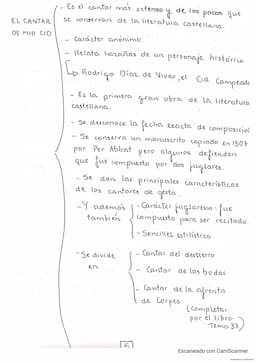 EL CANTAR
DE MIO CID
- Es el cantar más extenso y de los pocos que
se conservan de la literatura castellana.
- Carácter anónimo.
- Relata hazañas de un personaje histórico
↳ Rodrigo Díaz de Vivar, el Cid Campeador
- Es la primera gran obra de la literatura
castellana.
- Se desconoce la fecha exacta de composición
- Se conserva un manuscrito copiado en 1307
por Per Abbat pero algunos defienden
que fue compuesto por dos juglares.
- Se dan las principales características
de los cantares de gesta.
- Y además
también
- Carácter juglaresco: fue
compuesto para ser recitado.
- Sencillez estilística
- Se divide
en
- Cantar del destierro
- Cantar de las bodas
- Cantar de la afrenta
de Corpes.
(completar
por el libro-
Tema 37)
6
Escaneado con CamScanner